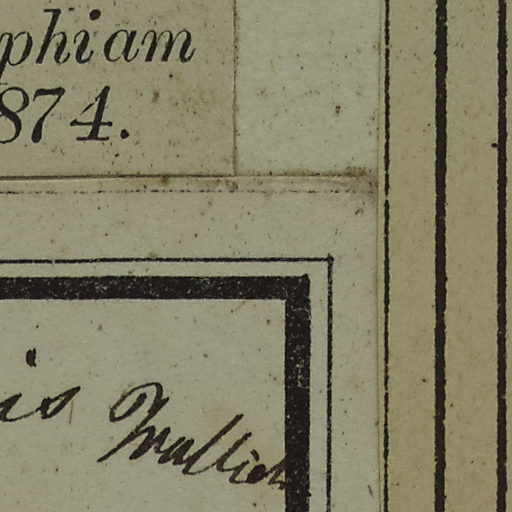 phiam
874.
is Wallich